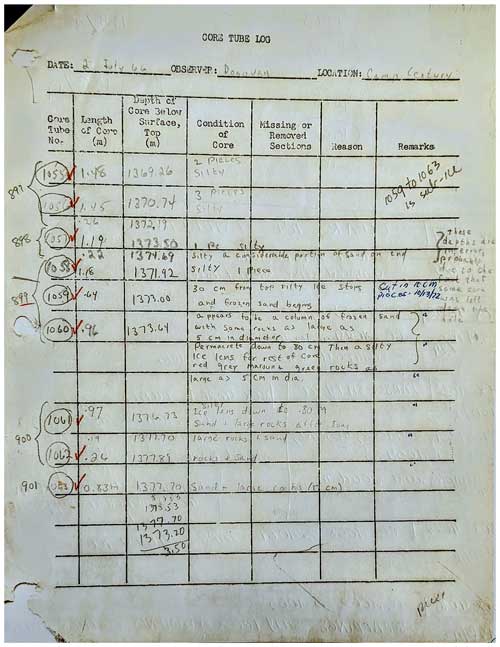 CORE TUBE LOG
DATE: 2 July 66 OBSERVER: Donovan LOCATION: Camp Century
Core Tube No. Length of Core (m) Depth of Core Below Surface, Top (m) Condition of Core Missing or Removed Sections Reason Remarks
897
2 Pieces
1055 1.48 1369.26 Silty
3 Pieces
1.45 1370.74 Silty
1059 to 1063
is sub-ice
1372.19
898 1057 1.19 1373.50 1 pce silty
.22 1374.69 Silty a considerable portion of sand on end
1058 1.18 1371.92 Silty 1 piece
these
depths are
899 1059 .64 1373.00 30 cm from top silty ice stops
and frozen sand begins
Cut in 10 cm
pieces - 10/19/72
1060 .96 1373.64 appears to be a column of frozen sand
with some rocks as large as
5 cm in diameter
Permacrete down to 80 cm Then a silty
Ice lens for rest of core
red grey maroune green rocks as
large as 5 cm in dia
900 1061 .97 1376.73 Ice lens down to .80 M
silty
Sand + large rocks after 80m
.19 1377.70 large rocks + sand
1062 .26 1377.89 rocks + sand
901 0.83m 1377.70 Sand + large rocks (5 cm)
1377.70
1373.20
3.50